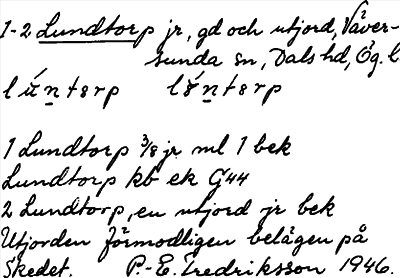 1-2 Lundtorp jr, gd och utjord, Väver-
sunda sn, Dals hd, Ög. l
lú̱ntorp lú̱ntorp
1 Lundtorp 3/8 jr ml 1 bek
Lundtorp kb ek G44
2 Lundtorp, en utjord jr bek
Utjorden förmodligen belägen på
Skedet. P.-E. Fredriksson 1946.